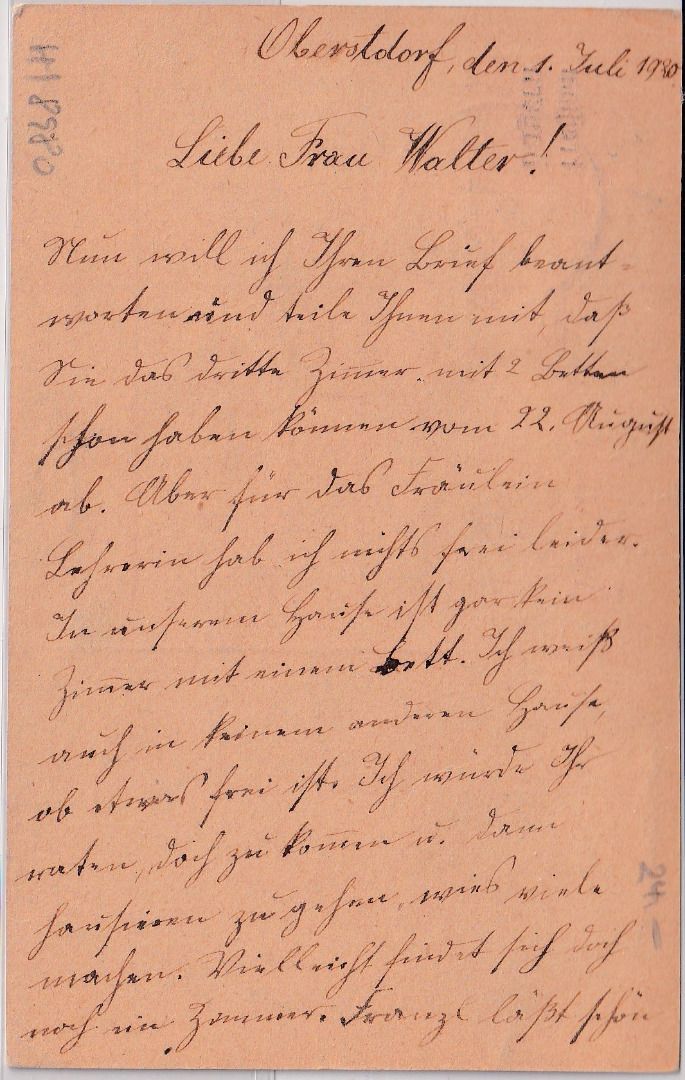 Oberstdorf, den 1. Juli 1920
Liebe Frau Walter!
Nun will ich Ihren Brief beant-
worten und teile Ihnen mit, daß
Sie das dritte Zimmer mit 2 Betten
schon haben können vom 22. August
ab. Aber für das Fräulein
Lehrerin hab ich nichts frei leider.
In unserem Hause ist gar kein
Zimmer mit einem Bett. Ich weiß
auch in keinem anderen Hause,
ob etwas frei ist. Ich würde Ihr
raten, doch zu kommen u. dann
hausieren zu gehen, wies viele
machen. Vielleicht findet sich doch
noch ein Zimmer. Franzl läßt schön
24 –